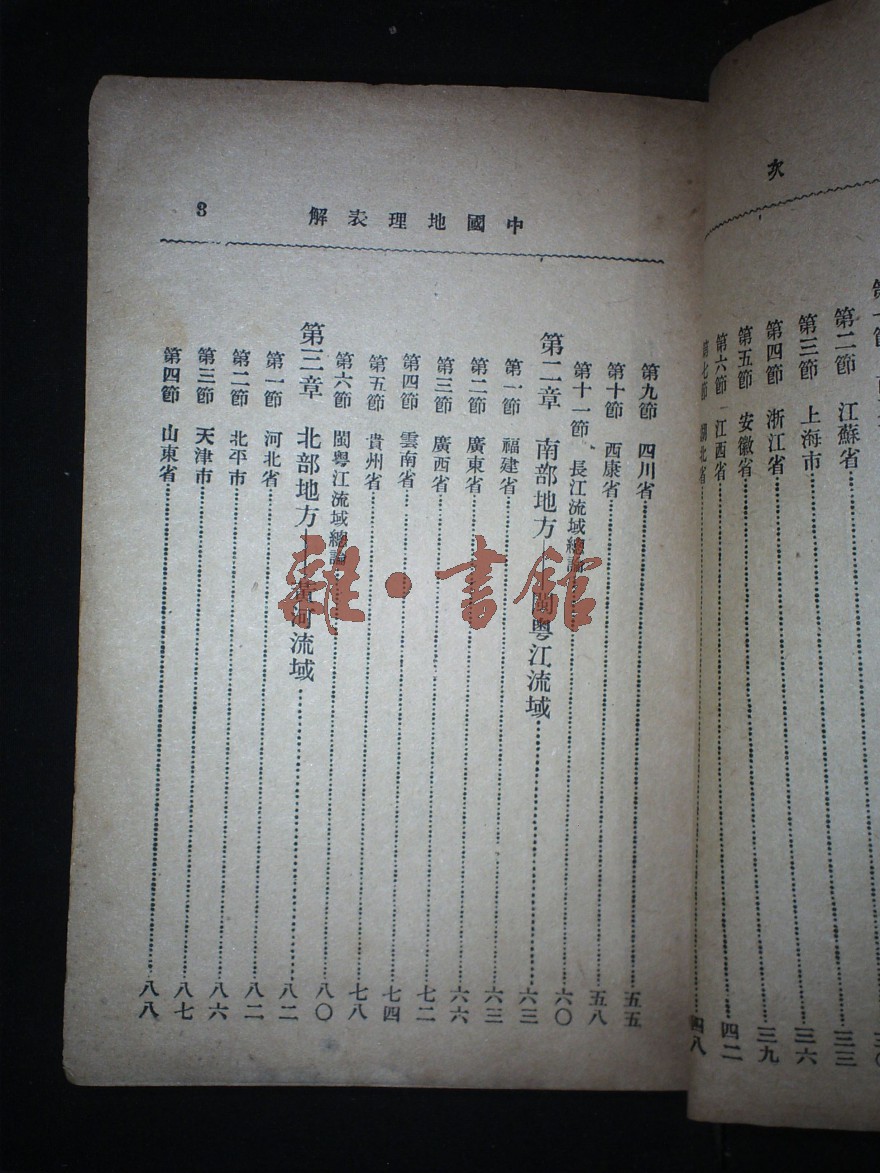 次
第二節　江蘇省……三三
第三節　上海市……三六
第四節　浙江省……三九
第五節　安徽省……四二
第六節　江西省
第七節　湖北省……四八
中國地理表解　3
第九節　四川省……五五
第十節　西康省……五八
第十一節　長江流域總論……六〇
第二章　南部地方—閩粵江流域……六三
第一節　福建省……六三
第二節　廣東省……六六
第三節　廣西省……七二
第四節　雲南省……七四
第五節　貴州省……七八
第六節　閩粵江流域總論……八〇
第三章　北部地方—黃河流域……八二
第一節　河北省……八二
第二節　北平市……八六
第三節　天津市……八七
第四節　山東省……八八
雜·書館